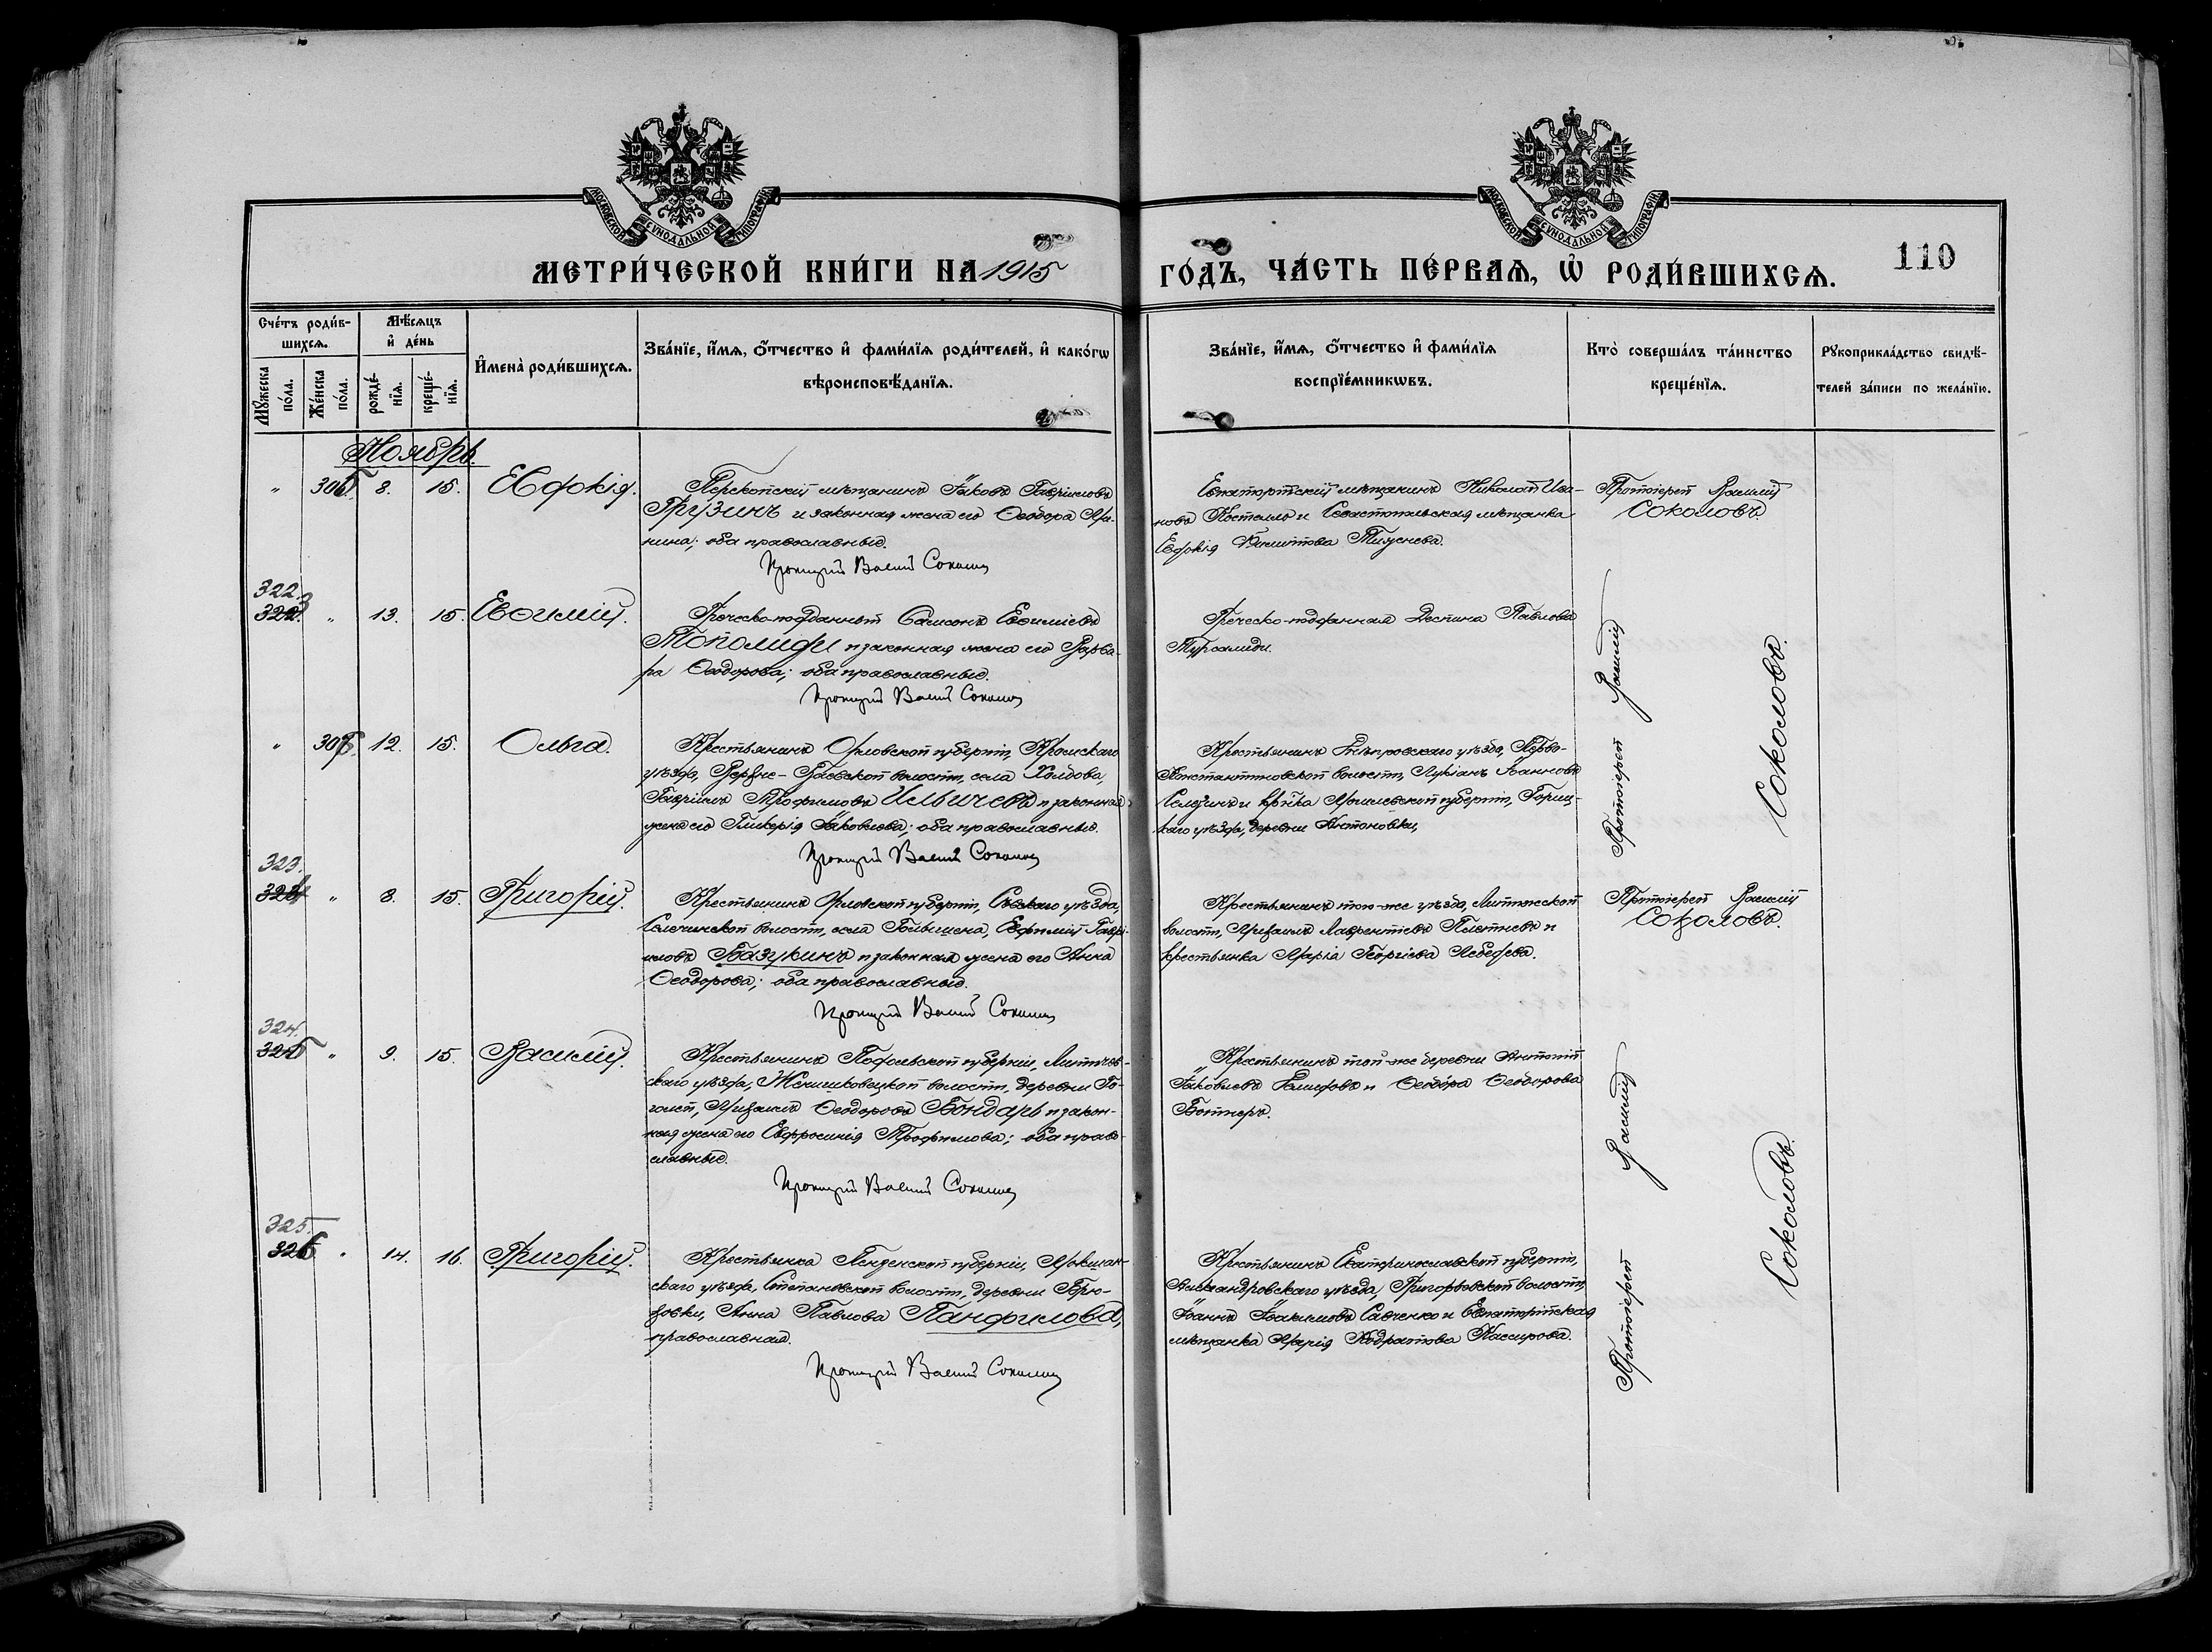 МОСКОВСКОЙ СѴНОДАЛЬНОЙ ТИПОГРАФІИ
МОСКОВСКОЙ СѴНОДАЛЬНОЙ ТИПОГРАФІИ
МЕТРИ́ЧЕСКОЙ КНИ́ГИ НА 1915 ГО́ДЪ, ЧА́СТЬ ПЕ́РВАѦ, Ѡ҆ РОДИ́ВШИХСѦ.
110
Сче́тъ роди́в-
шихсѧ.
Мѣ́сѧцъ
и҆ де́нь
Мꙋ́жеска
по́ла.
Же́нска
по́ла.
рожде́-
нїѧ.
креще́-
нїѧ.
И҆мена̀ роди́вшихсѧ.
Зва́нїе, и҆́мѧ, ѻ҆́тчество и҆ фами́лїѧ роди́телей, и҆ како́гѡ
вѣроисповѣ́данїѧ.
Зва́нїе, и҆́мѧ, ѻ҆́тчество и҆ фами́лїѧ
воспрїе́мникѡвъ.
Кто̀ соверша́лъ та́инство
креще́нїѧ.
Рꙋкоприкла́дство свидѣ́-
телей за́писи по жела́нїю.
Ноябрь.
" 306. 8. 15. Евдокія.
Перекопскій мѣщанинъ Іаковъ Гавріиловъ
Грузинъ и законная жена его Ѳеодора Ма-
нина; оба православные.
Протоіерей Василій Соколовъ
Евпаторійскій мѣщанинъ Николай Ива-
новъ и Севастопольская мѣщанка
Евдокія
Протоіерей Василій
Соколовъ.
322.
" 13. 15. Евѳимій.
Греческо-подданный Самсонъ Евѳиміевъ
Тополиди и законная жена его Варва-
ра Ѳеодорова; оба православные.
Протоіерей Василій Соколовъ
Греческо-подданная Деспина Павлова
Турсалиди.
Протоіерей Василій
Соколовъ.
" 12. 15. Ольга.
Крестьянинъ Орловской губерніи, Кромскаго
уѣзда, волости, села
Гавріилъ Трофимовъ и законная
жена его Гликерія Іаковлева; оба православные.
Протоіерей Василій Соколовъ
Крестьянинъ Днѣпровскаго уѣзда, Перво-
Константиновской волости, Лукіанъ Іоанновъ
и Могилевской губерніи, Горец-
каго уѣзда, деревни Антоновки,
323.
" 8. 15. Григорій.
Крестьянинъ Орловской губерніи, Сѣвскаго уѣзда,
волости, села Евфимій Гаврі-
иловъ Базукинъ и законная жена его Анна
Ѳеодорова; оба православные.
Протоіерей Василій Соколовъ
Крестьянинъ того-же уѣзда,
волости, Михаилъ Лаврентіевъ Плетневъ и
крестьянка Марія Георгіева Лебедева.
Протоіерей Василій
Соколовъ.
324.
" 9. 15. Василій.
Крестьянинъ Подольской губерніи, Литичев-
скаго уѣзда, волости, деревни Го-
Михаилъ Ѳеодоровъ Бондарь и закон-
ная жена его Евфросинія Трофимова; оба право-
славные.
Протоіерей Василій Соколовъ
Крестьянинъ той-же деревни Антоній
Іаковлевъ и Ѳеодора Ѳеодорова
Ботнеръ.
Протоіерей Василій
Соколовъ.
325.
326 " 14. 16. Григорій.
Крестьянка Пензенской губерніи, Мокшан-
скаго уѣзда, Степановской волости, деревни
Анна Павлова Панфилова,
православная.
Протоіерей Василій Соколовъ
Крестьянинъ Екатеринославской губерніи,
Александровскаго уѣзда, Григорьевской волости,
Іоаннъ Іоакимовъ Савченко и Евпаторійская
мѣщанка Марія Кодратова Кассирова.